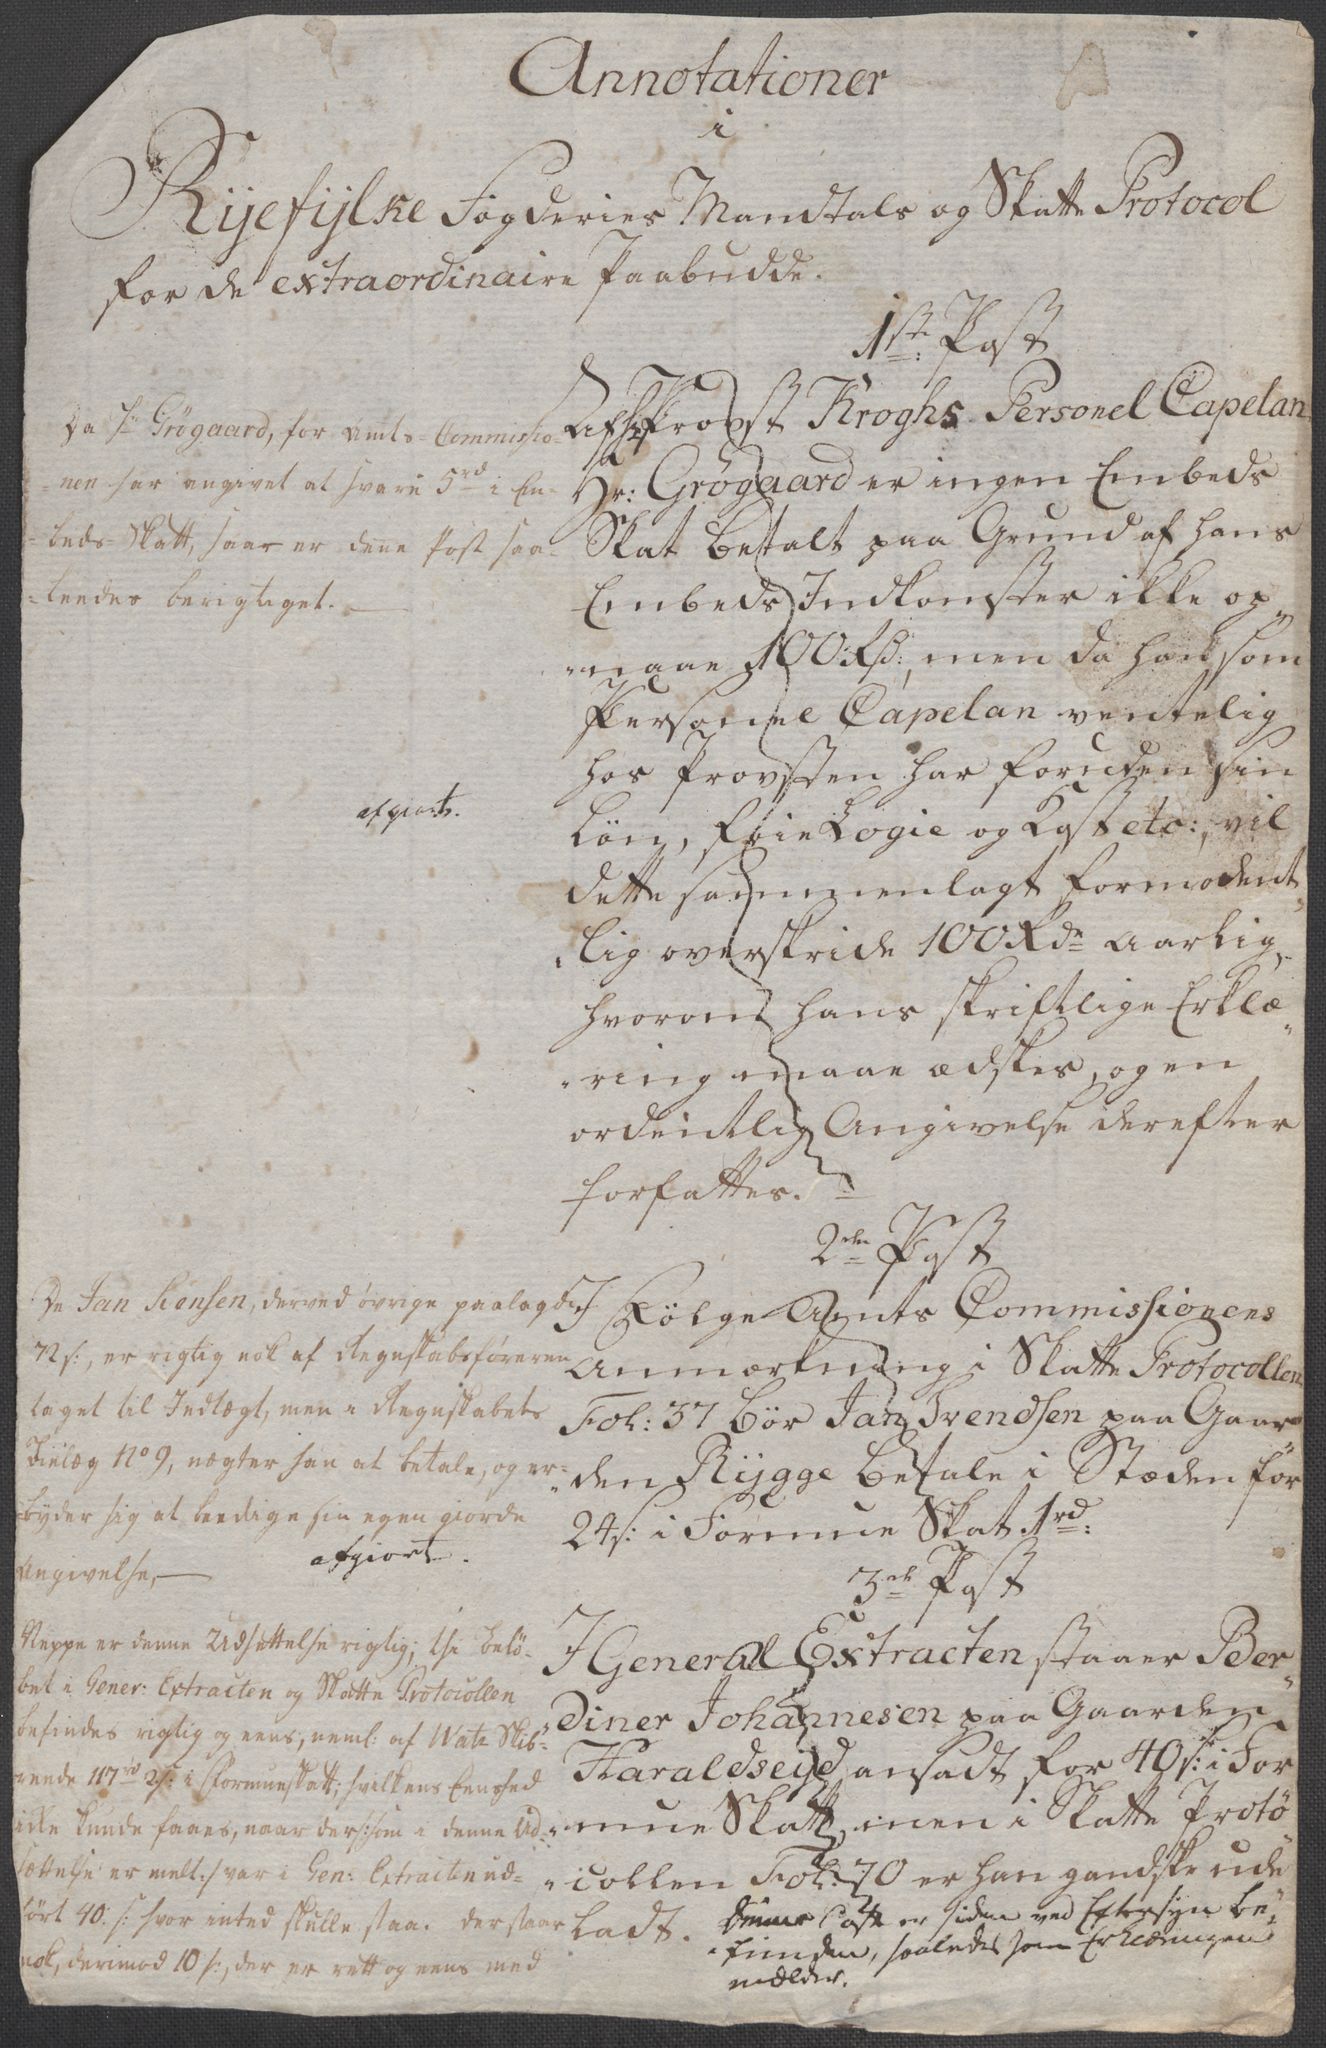 Annotationer
i
Ryefylke Fogderies Mandtals og Skatte Protocol
for de extraordinaire Paabudde.
1ste Post
Af Hr Provst Kroghs Personel Capelan
Hr: Grøgaard er ingen Embeds
Skat betalt paa Grund af hans
Embeds Indkomster ikke op-
-naae 100 Rd:, men da han som
Personel Capelan ventelig
hos Provsten har foruden sin
Løn, frie Logie og Kost etc:, vil
dette sammenlagt formodent-
-lig overskride 100 Rdr aarlig,
hvorom hans skriftlige Erklæ-
-ring maae ædskes, og en
ordentlig Angivelse derefter
forfattes.
Da Hr Grøgaard, for Amts-Commissio-
-nen har angivet at svare 5rd i Em-
-beds-Skatt, saa er denne Post saa-
-leedes berigtiget.
afgiort.
2den Post
I Følge Amts Commissionens
Anmærkning i Skatte Protocollen
Fol: 37 bør Jan Svendsen paa Gaar-
-den Rygge betale i Stæden for
24 s: i Formue Skat 1rd:
De Jan Svensen, derved øvrige paalagde
72 s:, er rigtig nok af Regnskabsføreren
taget til Indtægt, men i Regnskabets
Bielæg No 9, nægter han at betale, og er-
-byder sig at beedige sin egen giorde
Angivelse,
afgiort.
3die Post
I General Extracten staaer Ber-
diner Johannesen paa Gaarden
Haraldseyd ansadt for 40 s: i For-
-mue Skatt, men i Skatte Proto-
-collen Fol: 70 er han gandske ude-
ladt.
Denne Post er siden ved Eftersyn be-
-funden, saaledes som Erklæringen
melder.
Neppe er denne Udsættelse rigtig; thi belø-
bet i Gener: Extracten og Skatte Protocollen
befindes rigtig og eens, neml: af Wats Skib-
rende 117rd 2 s: i Formueskatt; hvilkens Eenshed
ikke kunde faaes, naar der, som i denne Ud-
sættelse er melt, var i Gen: Extracten ud-
ført 40. s: hvor inted skulle staa. Der staar
nok, derimod 10 s:, der er rett og eens med